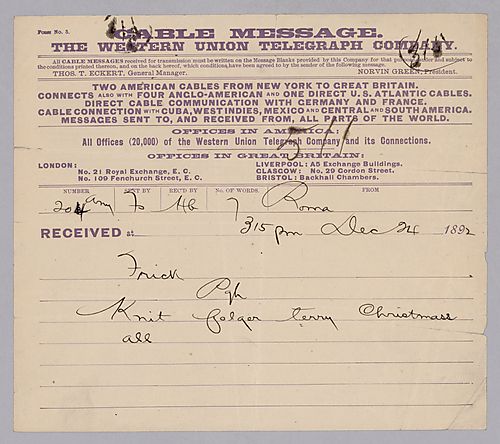 FORM No. 5.
CABLE MESSAGE.
THE WESTERN UNION TELEGRAPH COMPANY.
All CABLE MESSAGES received for transmission must be written on the Message Blanks provided by this Company for that purpose under and subject to
the conditions printed thereon, and on the back hereof, which conditions, have been agreed to by the sender of the following message.
THOS. T. ECKERT, General Manager. NORVIN GREEN, President.
TWO AMERICAN CABLES FROM NEW YORK TO GREAT BRITAIN.
CONNECTS ALSO WITH FOUR ANGLO-AMERICAN AND ONE DIRECT U.S. ATLANTIC CABLES.
DIRECT CABLE COMMUNICATION WITH GERMANY AND FRANCE.
CABLE CONNECTION WITH CUBA, WEST INDIES, MEXICO AND CENTRAL AND SOUTH AMERICA.
MESSAGES SENT TO, AND RECEIVED FROM, ALL PARTS OF THE WORLD.
OFFICES IN AMERICA:
All Offices (20,000) of the Western Union Telegraph Company and its Connections.
OFFICES IN GREAT BRITAIN:
LONDON: LIVERPOOL: A5 Exchange Buildings.
No. 21 Royal Exchange, E. C. GLASGOW: No. 29 Gordon Street.
No. 109 Fenchurch Street, E. C. BRISTOL: Backhall Chambers.
NUMBER SENT BY REC'D BY No. OF WORDS. FROM
204 7 Roma
RECEIVED at 315 pm Dec 24 1892
Frick
Pgh
Knit Folger terry Christmass
all